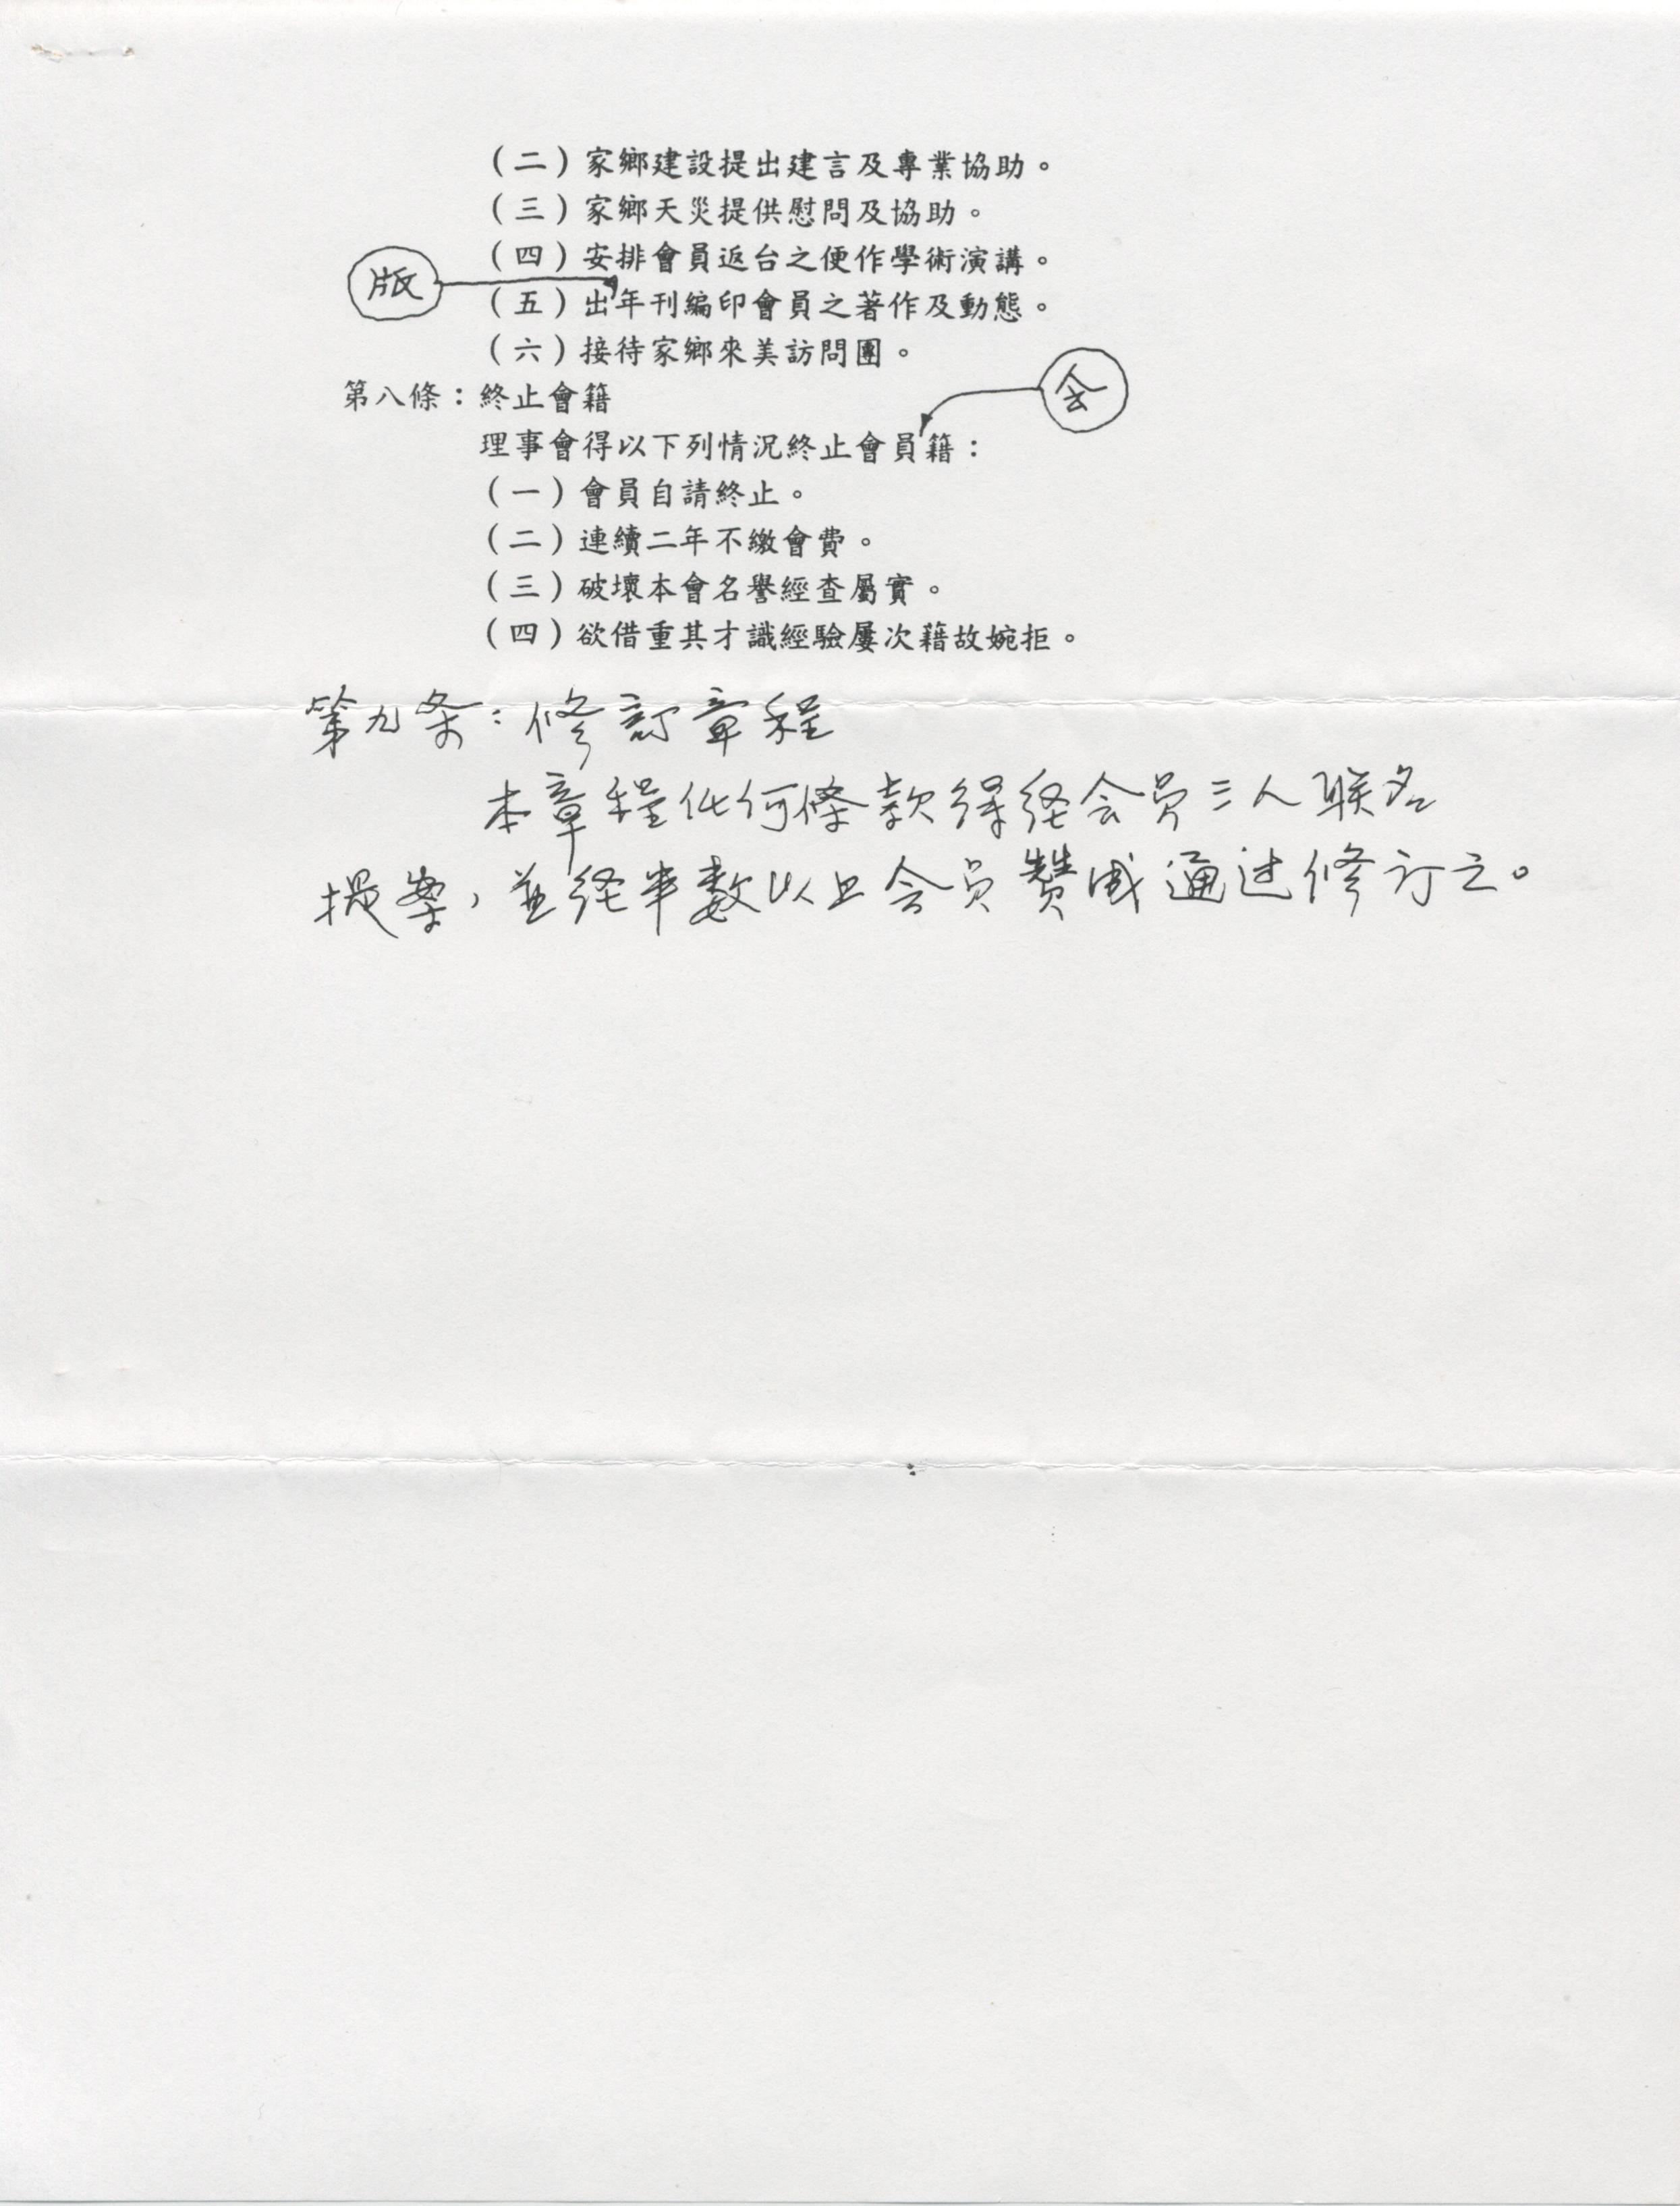 （二）家鄉建設提出建言及專業協助。
（三）家鄉天災提供慰問及協助。
（四）安排會員返台之便作學術演講。
版
（五）出年刊編印會員之著作及動態。
（六）接待家鄉來美訪問團。
会
第八條：終止會籍
理事會得以下列情況終止會員籍：
（一）會員自請終止。
（二）連續二年不繳會費。
（三）破壞本會名譽經查屬實。
（四）欲借重其才識經驗屢次藉故婉拒。
第九条：修訂章程
本章程任何條款得経会员三人联名
提案，並経半數以上会员贊成通过修订之。